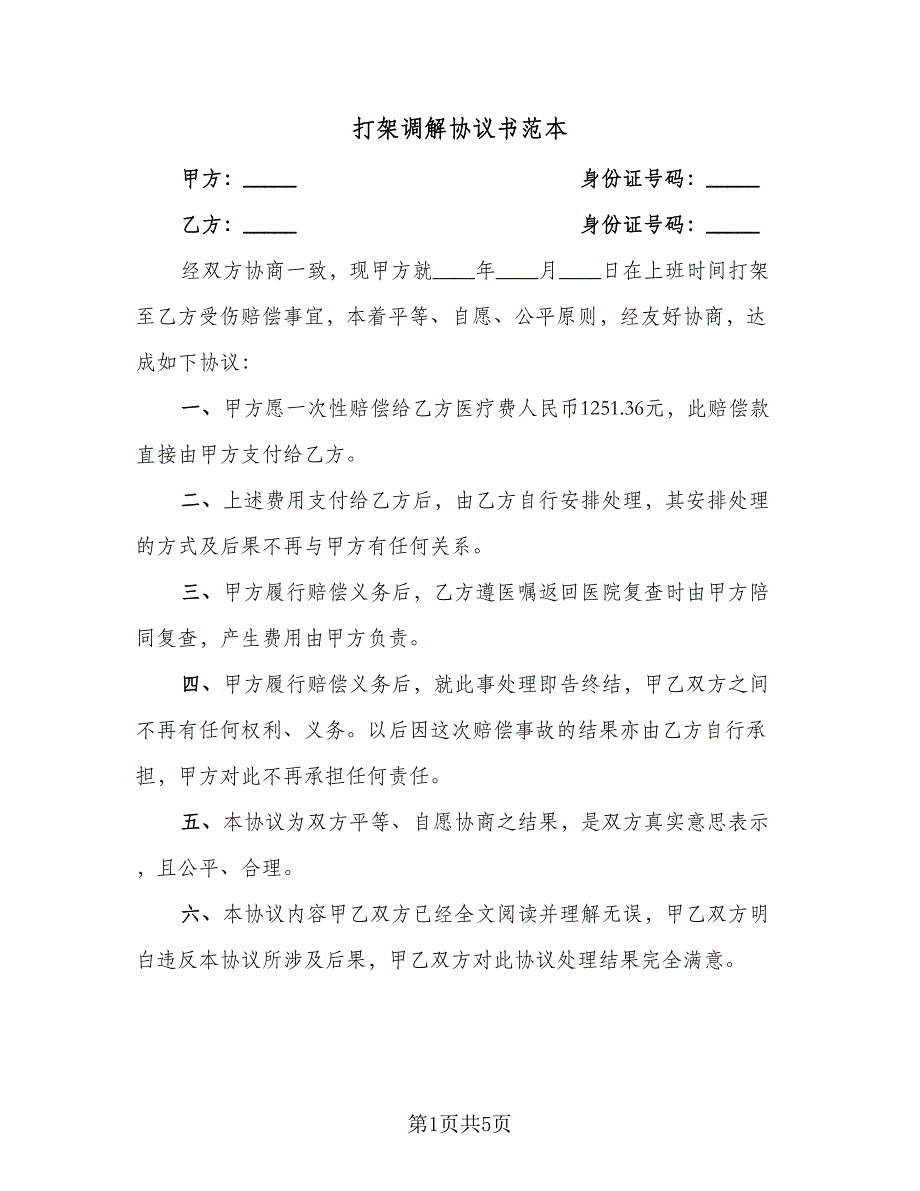 打架调解协议书范本
甲方：_____ 身份证号码：_____
乙方：_____ 身份证号码：_____
经双方协商一致，现甲方就____年____月____日在上班时间打架
至乙方受伤赔偿事宜，本着平等、自愿、公平原则，经友好协商，达
成如下协议：
一、甲方愿一次性赔偿给乙方医疗费人民币1251.36元，此赔偿款
直接由甲方支付给乙方。
二、上述费用支付给乙方后，由乙方自行安排处理，其安排处理
的方式及后果不再与甲方有任何关系。
三、甲方履行赔偿义务后，乙方遵医嘱返回医院复查时由甲方陪
同复查，产生费用由甲方负责。
四、甲方履行赔偿义务后，就此事处理即告终结，甲乙双方之间
不再有任何权利、义务。以后因这次赔偿事故的结果亦由乙方自行承
担，甲方对此不再承担任何责任。
五、本协议为双方平等、自愿协商之结果，是双方真实意思表示
，且公平、合理。
六、本协议内容甲乙双方已经全文阅读并理解无误，甲乙双方明
白违反本协议所涉及后果，甲乙双方对此协议处理结果完全满意。
第1页共5页